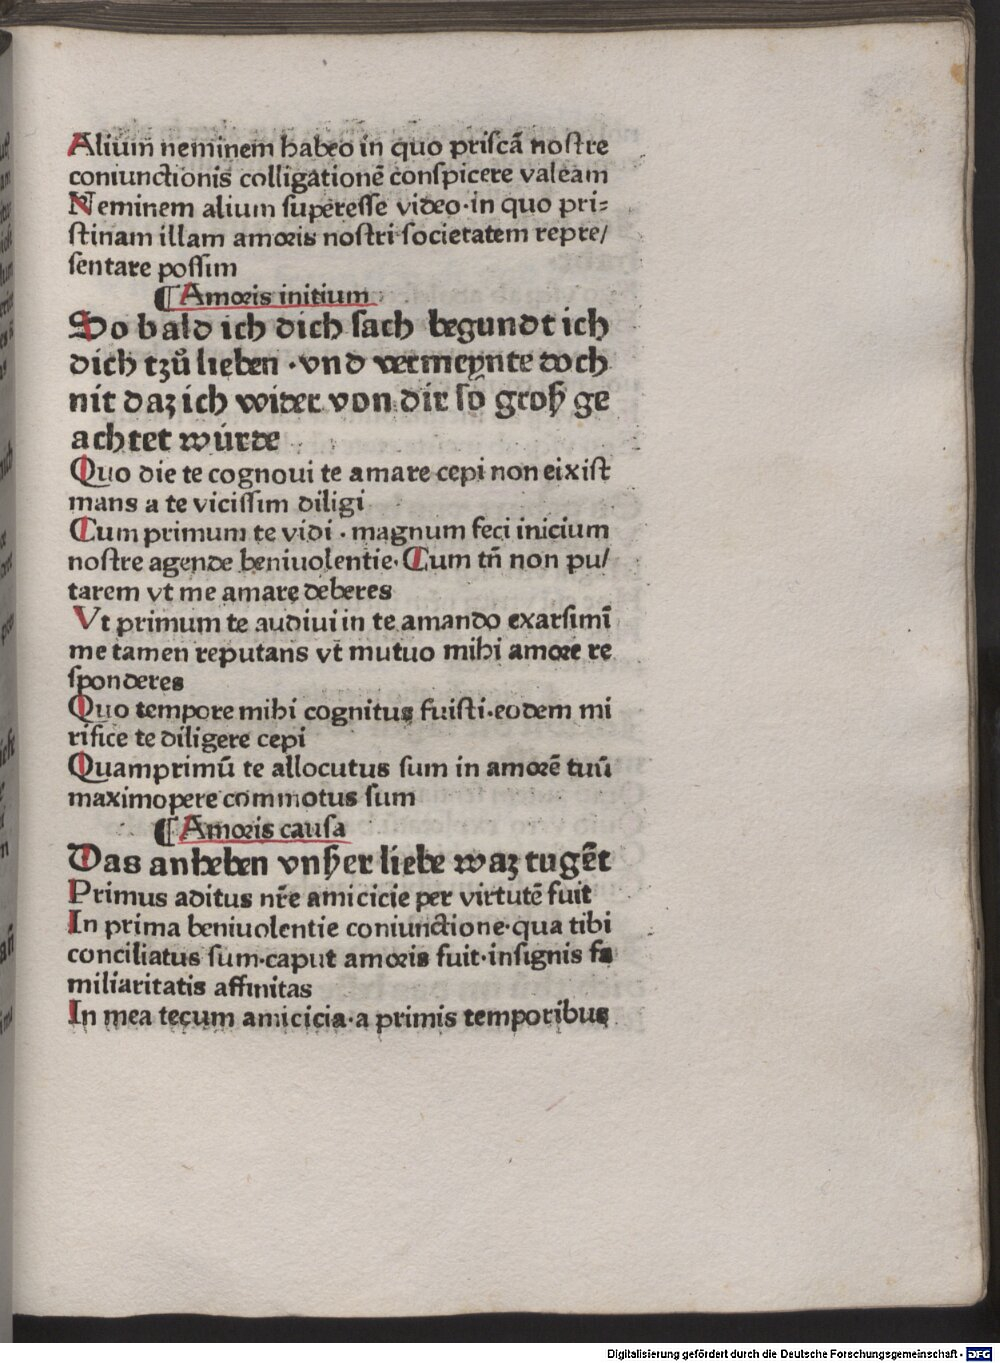 Alium̄ neminem habeo in quo priscā nostre
coniunctionis colligationē conspicere valeam
Neminem alium superesse video·in quo pri⸗
stinam illam amoris nostri societatem repre/
sentare possim
¶Amoris initium
So bald ich dich sach begundt ich
dich tzů lieben ·vnd vermeynte doch
nit daz ich wider von dir so groß ge
achtet würde
Quo die te cognoui te amare cepi non eixist
mans a te vicissim diligi
Cum primum te vidi · magnum feci inicium
nostre agende beniuolentie·Cum tn̄ non pu/
tarem vt me amare deberes
Vt primum te audiui in te amando exarsimī
me tamen reputans vt mutuo mihi amore re
sponderes
Quo tempore mihi cognitus fuisti·eodem mi
rifice te diligere cepi
Quamprimū te allocutus sum in amorē tuū
maximopere commotus sum
¶Amoris causa
Das anheben vnßer liebe waz tugēt
Primus aditus nr̄e amicicie per virtutē fuit
In prima beniuolentie coniunctione·qua tibi
conciliatus sum·caput amoris fuit·insignis fa
miliaritatis affinitas
In mea tecum amicicia·a primis temporibus
Digitalisierung gefördert durch die Deutsche Forschungsgemeinschaft - DFG